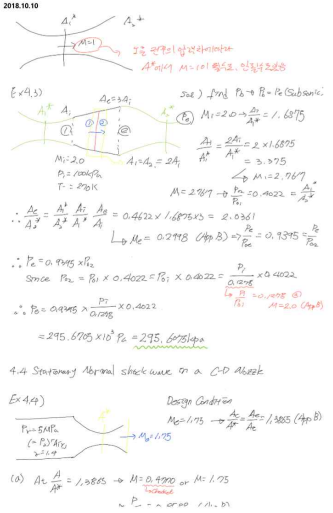 2018.10.10
A₁* A₂*
M=1
A*에서 M=1이 필요로
Ex4.3)
A₁* Aᵢ Ae=3Aᵢ A₂*
① ② ⓔ
Mᵢ=2.0 A₁=A₂=2Aᵢ
Pᵢ=100kPa
T=270K
Sol) find Pb → Pb=Pe (Subsonic)
Mᵢ=2.0 → Aᵢ/A₁* = 1.6875
A₁/A₁* = 2Aᵢ/A₁* = 2×1.6875
= 3.375
↳ M₁=2.767
M=2.767 → P₀₂/P₀₁=0.4022=A₁*/A₂*
∴ Ae/A₂* = A₁*/A₂* Aᵢ/A₁* Ae/Aᵢ = 0.4022×1.6875×3 = 2.0361
↳ Me = 0.2998 (App B) ⇒ Pe/P₀e = 0.9395 = Pe/P₀₂
∴ Pe = 0.9395×P₀₂
since P₀₂ = P₀₁×0.4022 = P₀ᵢ×0.4022 = Pᵢ/0.1278 ×0.4022
↳ Pᵢ/P₀ᵢ=0.1278 @ M=2.0 (App B)
∴ Pe = 0.9395 × Pᵢ/0.1278 × 0.4022
= 295.6705×10³ Pa = 295.6705kPa
4.4 Stationary Normal shock wave in a C-D Nozzle
Ex4.4)
Design Condition
Me=1.75 → Ae/A* = Ae/At = 1.3865 (App B)
Pr=5MPa
γ=1.4
→ Me=1.75
(a) At A/A* = 1.3865 → M=0.4770 or M=1.75